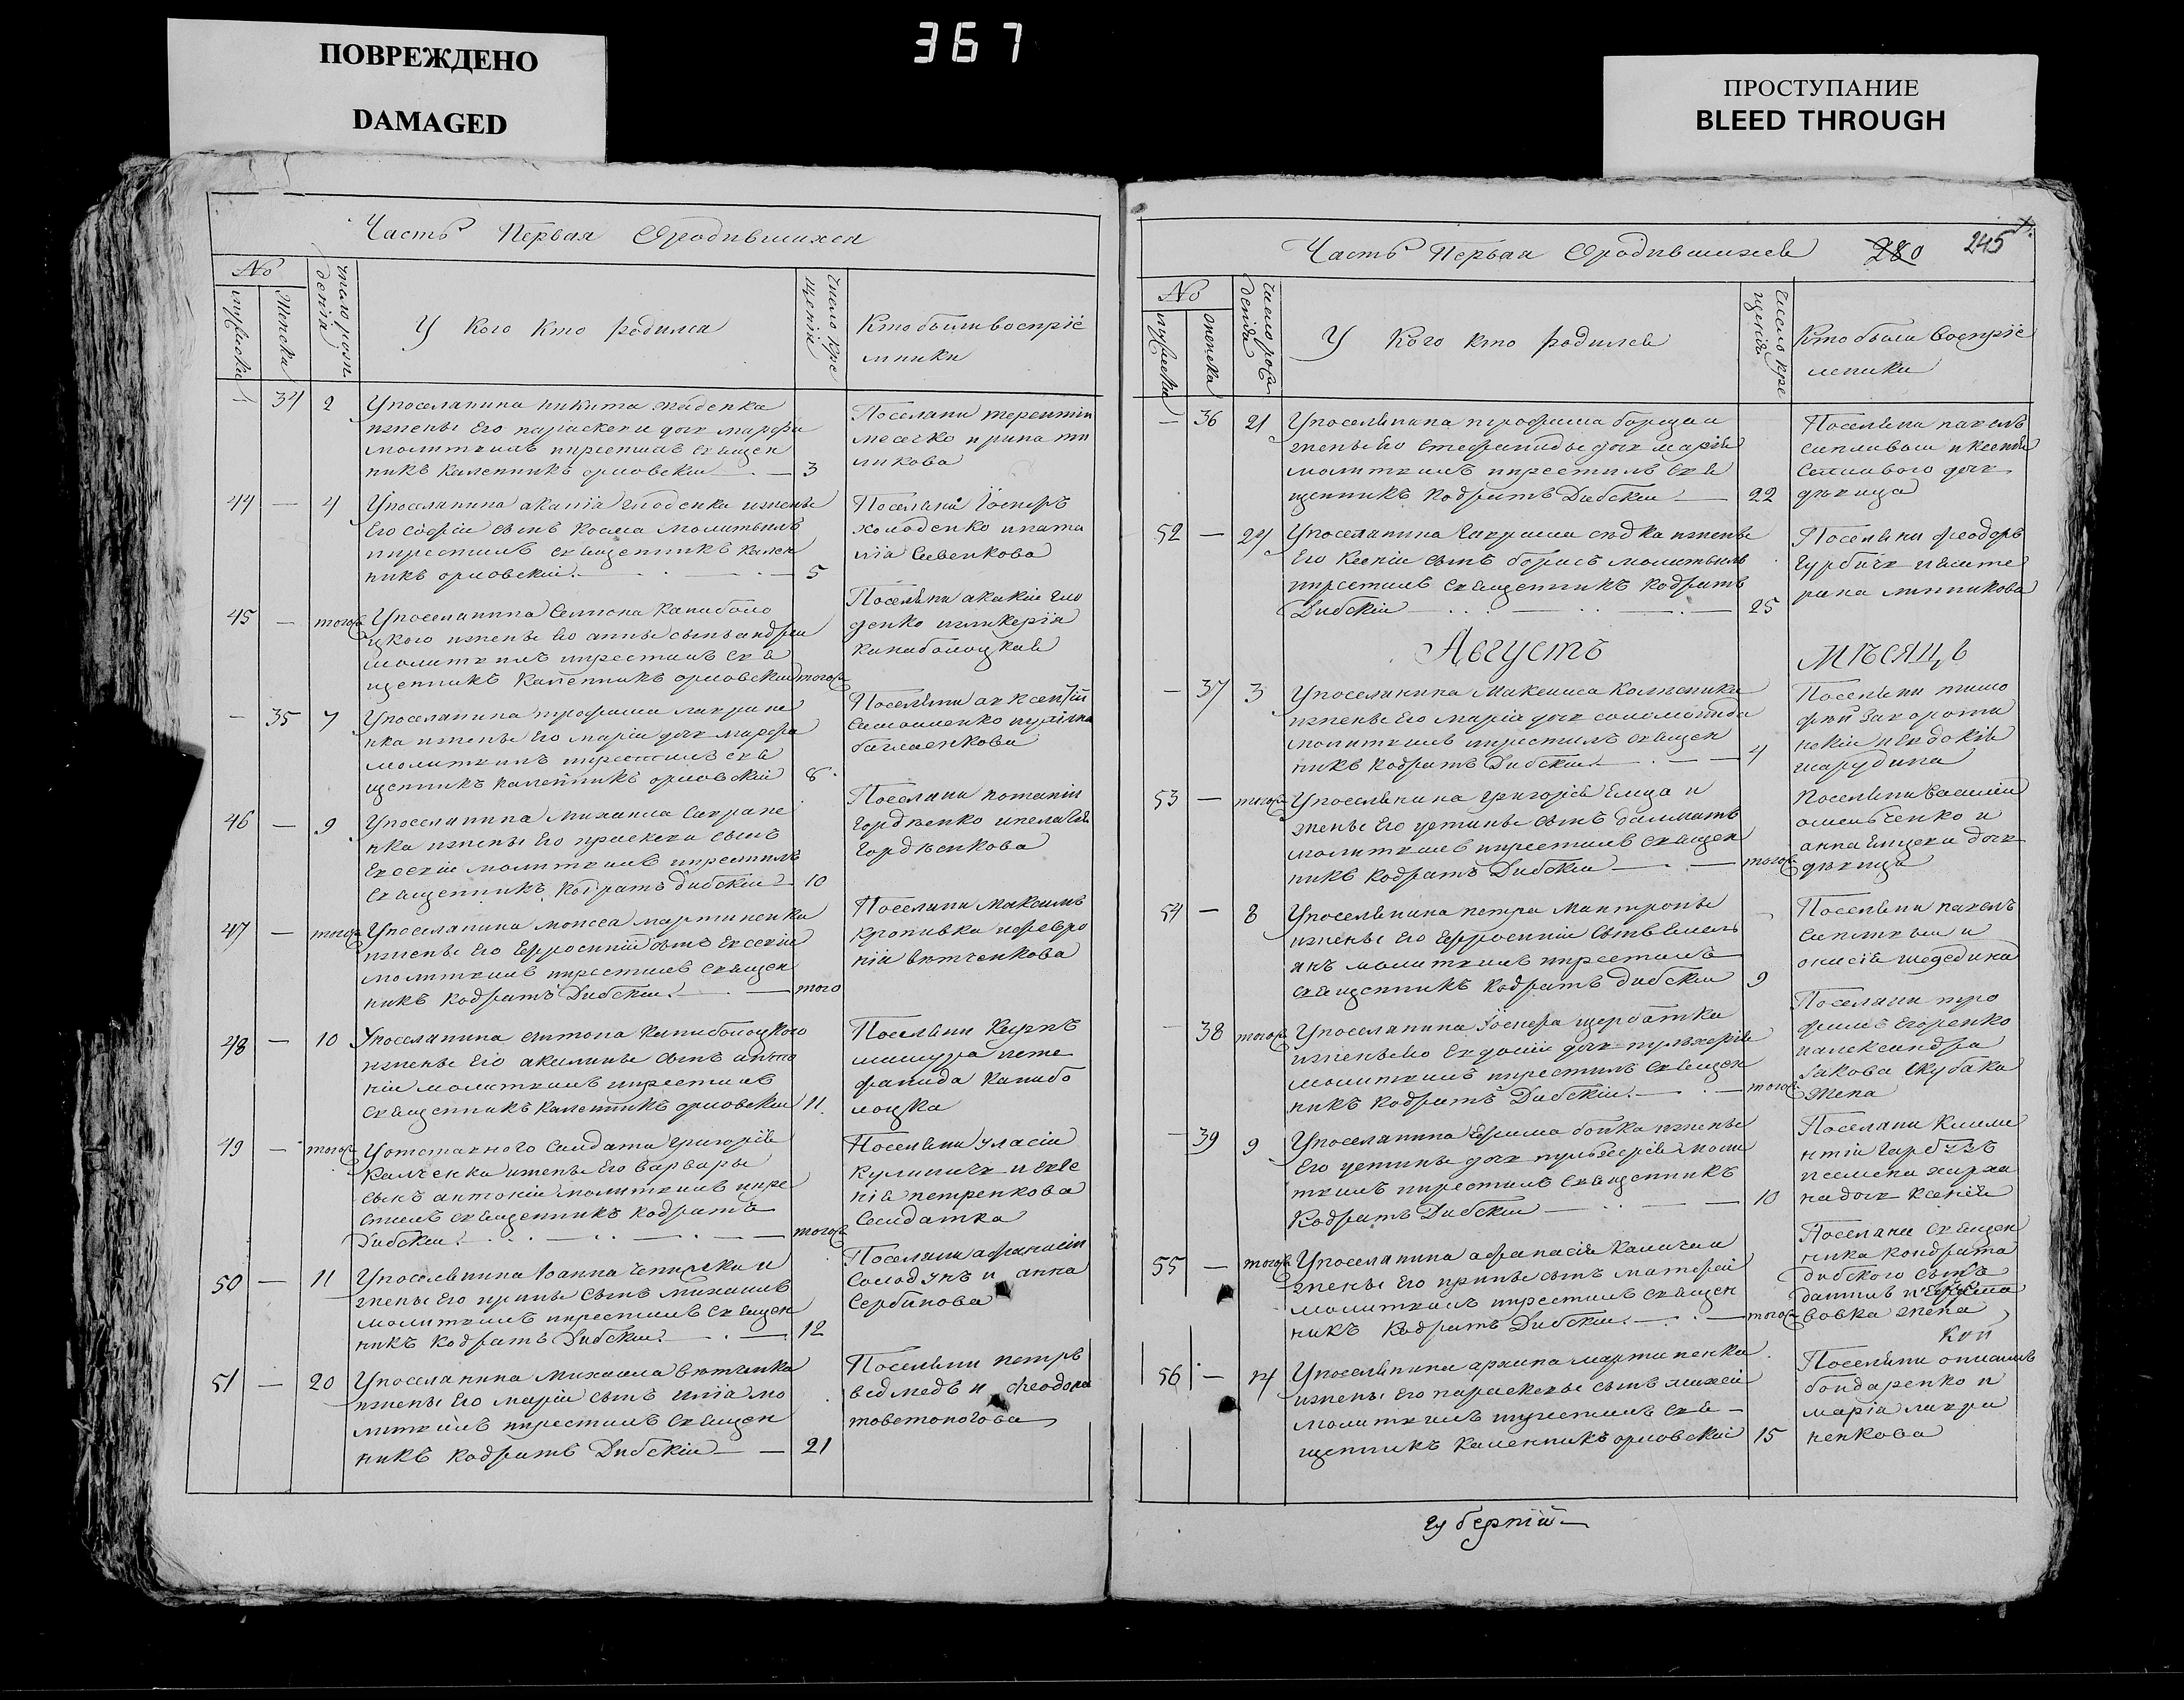 ПОВРЕЖДЕНО
DAMAGED
367
ПРОСТУПАНИЕ
BLEED THROUGH
Часть Первая Ородившихся
No
мужски
женски
число рож
денія
У кого кто родился
число кре
щенія
Кто были воспріе
мники
— 34 2 Упоселанина никита
ижены Его параскеви дочь марфа
молитвилъ икрестилъ священ
никъ каленникъ орловскій — 3
Поселани терентій
и рина
ликова
44 — 4 Упоселанина акакія глоденка ижены
Его Софіи сынъ косма молитвилъ
икрестилъ священникъ кален
никъ орловскій — 5
Поселяни Іосифъ
холоденко ината
лія Сивенкова
45 — тогож Упоселанина Семиона Канаболо
цкого ижены Его анны сынъ андрей
молитвилъ икрестилъ свя
щенникъ каленникъ орловскій тогож
Поселяни акакіи гло
денко игликерія
канаболоцкая
— 35 7 Упоселанина трофима лаврине
нка ижены Его маріи дочь марфа
молитвилъ икрестилъ свя
щенникъ каленникъ орловскій 8
Поселяни авксентій
Самойленко
46 — 9 Упоселанина михаила Лаврине
нка ижены Его праскеви сынъ
Евсевій молитвилъ икрестилъ
священникъ кодратъ дибскіи 10
Поселяни
Гордѣенко ипелагія
Гордѣенкова
47 — тогож Упоселанина моисея мартиненка
ижены Его Ефросиніи сынъ Евсевіи
молитвилъ икрестилъ священ
никъ кодратъ Дибскіи — того
Поселани максимъ
кропивка ифевро
нія вятченкова
48 — 10 Упоселанина антона канаболоцкого
ижены Его акилины сынъ анто
ній молитвилъ икрестилъ
священникъ каленникъ орловскіи 11
Поселяни
фанида канабо
лоцка
49 — тогож Уотставного Салдата григорія
калченка ижены Его варвары
сынъ антоніи молитвилъ икре
стилъ священникъ кодратъ
Дибскіи — тогож
Поселяни уласіи
куличъ и евге
нія петренкова
Салдатка
50 — 11 Упоселянина Іоанна и
жены Его ирины сынъ михаилъ
молитвилъ икрестилъ священ
никъ кодратъ Дибскіи — 12
Поселяни афанасіи
Солодунъ и анна
Сербинова
51 — 20 Упоселанина михаила вятченка
ижены Его маріи сынъ илія мо
литвилъ икрестилъ священ
никъ кодратъ Дибскіи — 21
Поселяни петръ
ведмедь и феодора
товстоногова
Часть Первая Ородившихся 280 245
No
мужески
женска
число рож
денія
У кого кто родился
число кре
щенія
Кто были воспріе
мники
— 36 21 Упоселянина трофима борща и
жены Его Стефаниды дочь марія
молитвилъ икрестилъ свя
щенникъ кодратъ Дибскіи — 22
Поселяни павелъ
сипливый иксенія
сипливого дочь
дѣвица
52 — 24 Упоселанина ижены
Его Ксеніи сынъ борисъ молитвилъ
икрестилъ священникъ кодратъ
Дибскіи — 25
Поселяни феодоръ
Гурбичъ икате
рина минникова
Августъ Мѣсяцъ
— 37 3 Упоселанина Максима
ижены Его маріи дочь соломонида
молитвилъ икрестилъ священ
никъ кодратъ Дибскіи — 4
Поселяни тимо
фей
нскіи иевдокія
шарудина
53 — тогож Упоселянина григорія Елца и
жены Его устины сынъ далматъ
молитвилъ икрестилъ священ
никъ кодратъ Дибскіи — тогож
Поселяни василій
омельченко и
анна дочь
дѣвица
54 — 8 Упоселянина петра мантропы
ижены Его Ефросиніи сынъ Емель
янъ молитвилъ икрестилъ
священникъ кодратъ дибскіи 9
Поселяни павелъ
сипливый и
онисія шедедина
— 38 тогож Упоселанина Іосифа щербатка
ижены Его Евдокіи дочь пульхерія
молитвилъ икрестилъ священ
никъ кодратъ Дибскіи — тогож
Поселяни тро
фимъ Егоренко
иалександра
Іакова скубака
жена
— 39 9 Упоселанина Ефима бойка ижены
Его устины дочь пульхерія моли
твилъ икрестилъ священникъ
кодратъ Дибскіи — 10
Поселани Климе
нтій Гарбузъ
дочь ксенія
55 — тогож Упоселанина афанасія калича и
жены Его ирины сынъ матфей
молитвилъ икрестилъ священ
никъ кодратъ Дибскіи — тогож
Поселани священ
ника кондрата
дибского сынъ
даниилъ
вовка жена
56 — 14 Упоселянина архипа мартиненка
ижены Его параскевы сынъ михей
молитвилъ икрестилъ свя —
щенникъ каленникъ орловскіи 15
Поселяни
бондаренко и
марія лаври
ненкова
Губерній